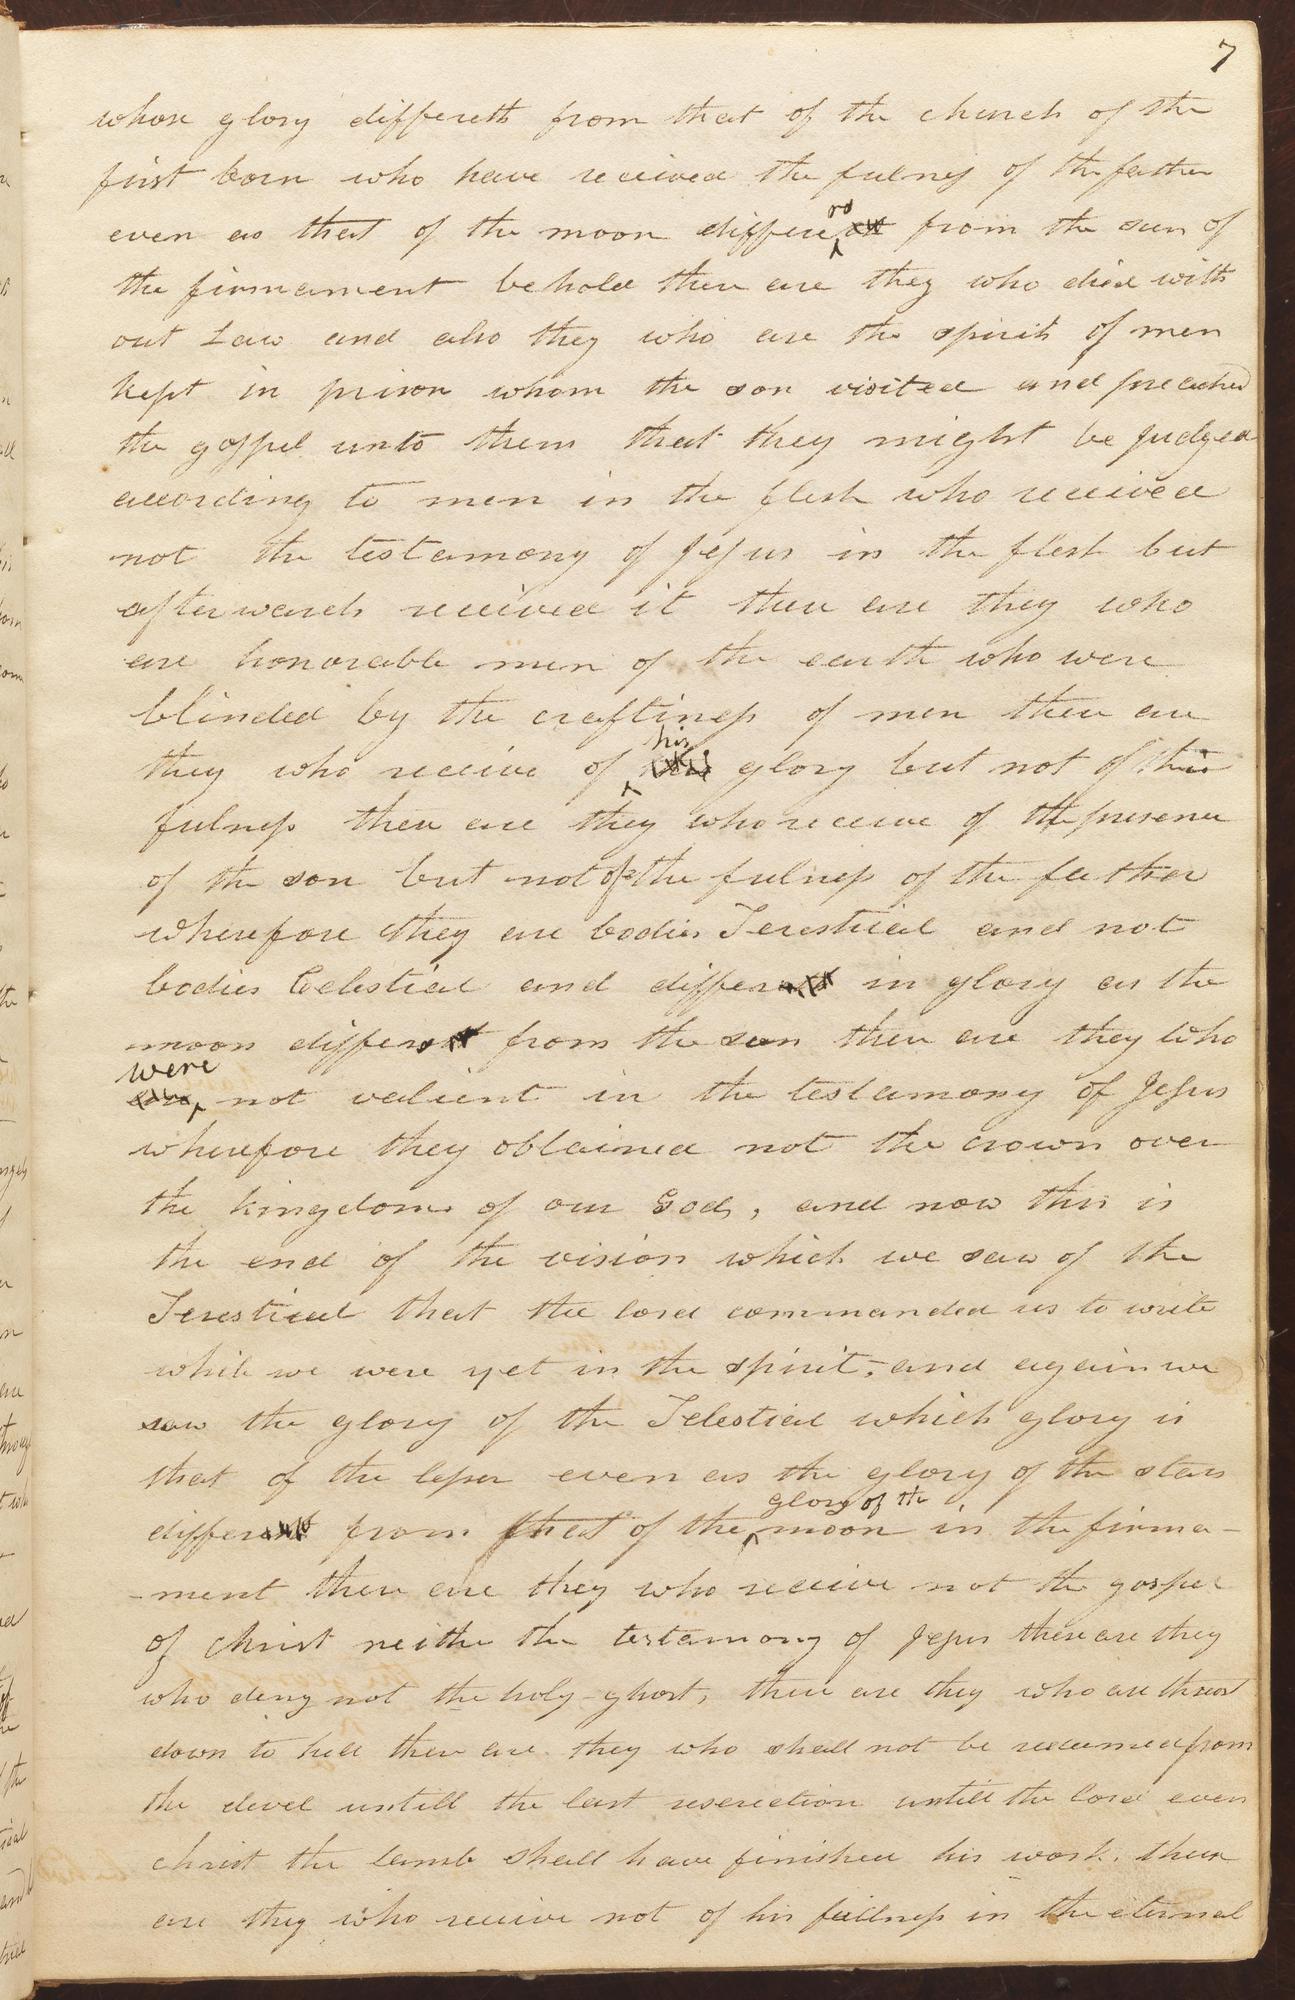 7
whose glory differeth from that of the church of the
first born who have received the fulness of the father
even as that of the moon differe rs from the sun of
the firmament behold these are they who died with
out Law and also they who are the spirits of men
kept in prison whom the son visited and preached
the gospel unto them that they might be judged
according to men in the flesh who received
not the testamony of Jesus in the flesh but
afterwards received it these are they who
are honorable men of the earth who were
blinded by the craftiness of men these are
they who receive of his glory but not of his
fulness these are they who receive of the presence
of the son but not of the fulness of the father
wherefore they are bodies Terestrial and not
bodies Celestial and differ in glory as the
moon differs from the sun these are they who
were not valient in the testamony of Jesus
wherefore they obtained not the crown over
the kingdoms of our God, and now this is
the end of the vision which we saw of the
Terestrial that the lord commanded us to write
while we were yet in the spirit, and again we
saw the glory of the Telestial which glory is
that of the lesser even as the glory of the stars
differ from that of the glory of the moon in the firma-
-ment these are they who receive not the gospel
of christ neither the testamony of Jesus these are they
who deny not the holy ghost, these are they who are thrust
down to hell these are they who shall not be redeemed from
the devel untill the last reserection untill the lord even
christ the lamb shall have finished his work. these
are they who receive not of his fullness in the eternal